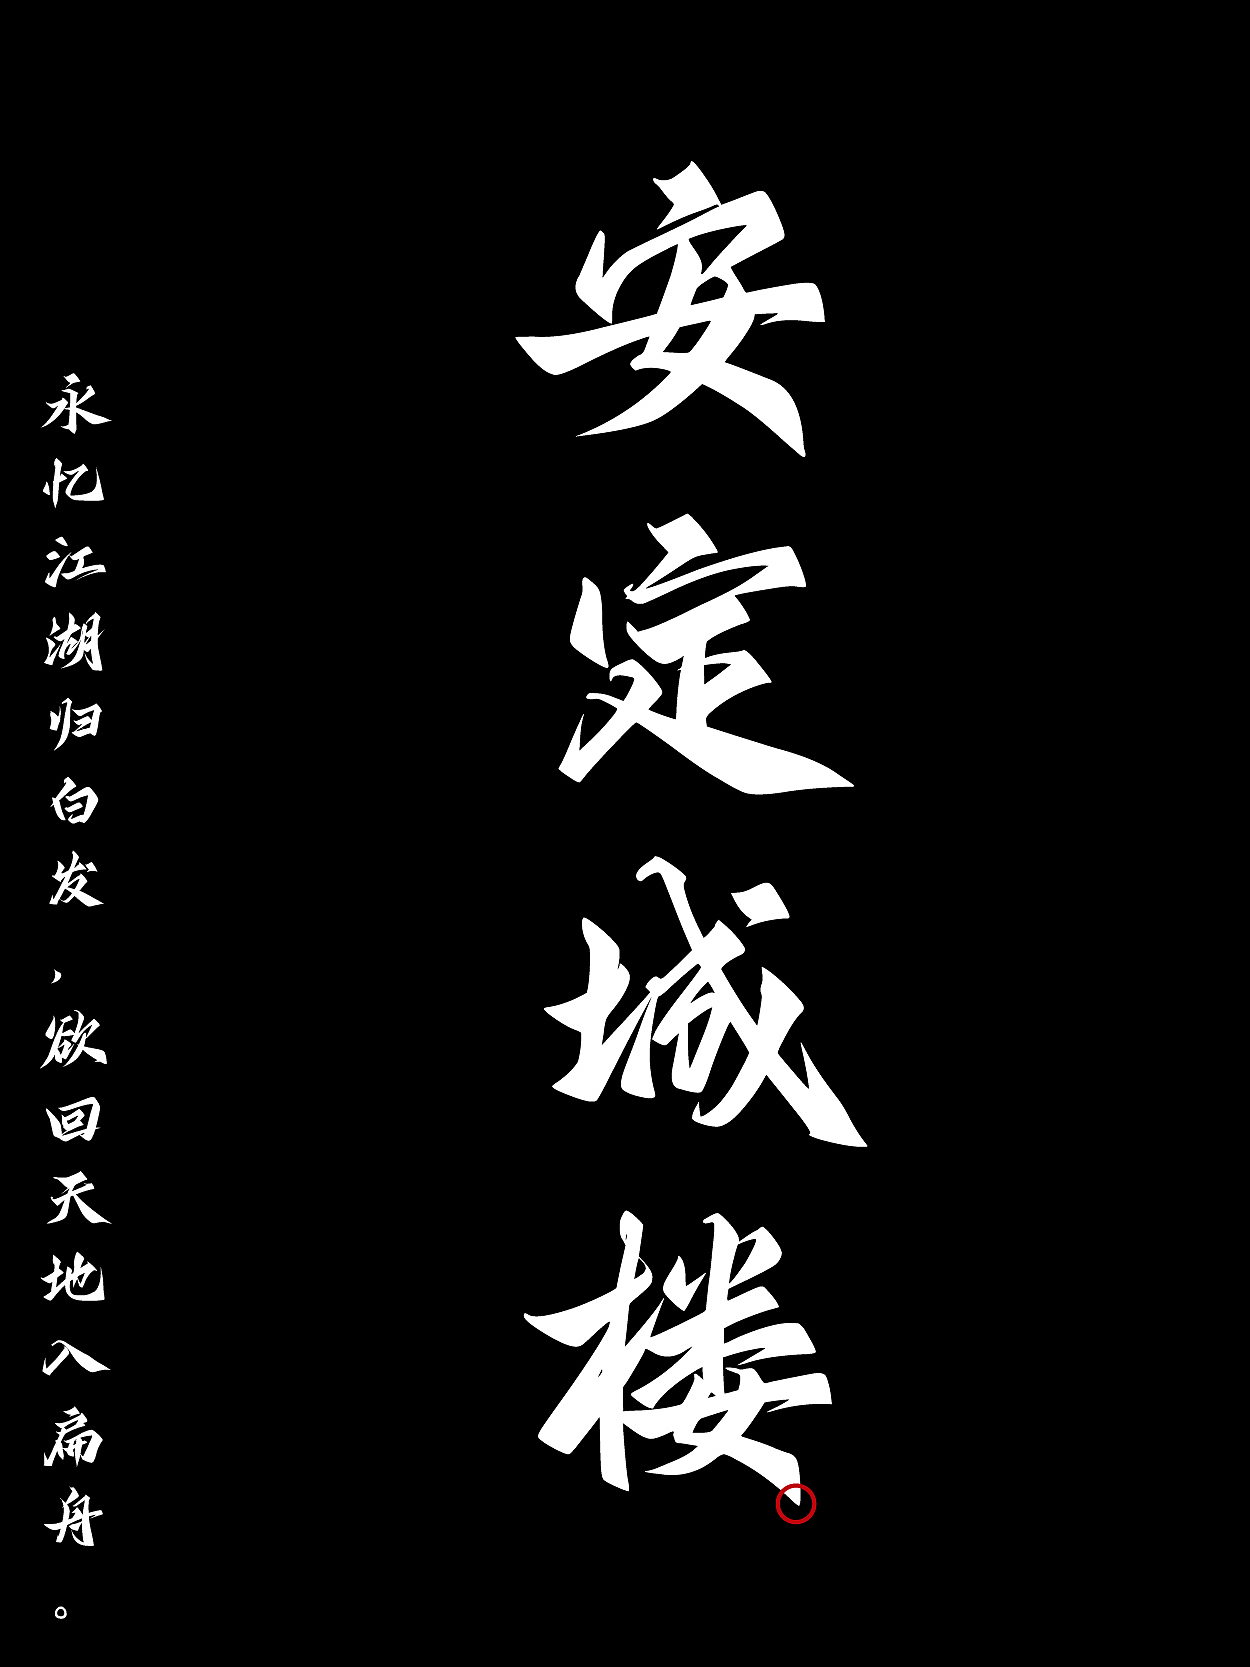 安定城楼
永忆江湖归白发，欲回天地入扁舟。